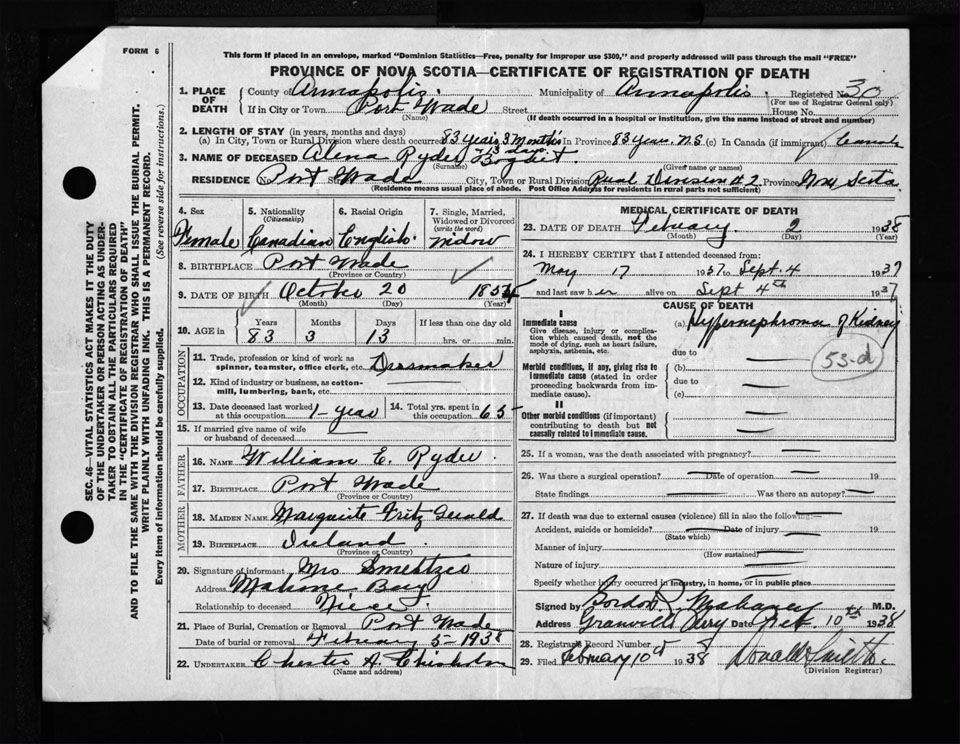 FORM 6
This form if placed in an envelope, marked "Dominion Statistics—Free, penalty for improper use $300," and properly addressed will pass through the mail "FREE"
PROVINCE OF NOVA SCOTIA—CERTIFICATE OF REGISTRATION OF DEATH
1. PLACE OF DEATH
County of Annapolis. Municipality of Annapolis. Registered No. 30
(For use of Registrar General only)
If in City or Town Port Wade Street House No.
(Name) (If death occurred in a hospital or institution, give the name instead of street and number)
2. LENGTH OF STAY (in years, months and days)
(a) In City, Town or Rural Division where death occurred 83 years 3 months 13 days In Province 83 years N.S. (c) In Canada (if immigrant) Canada
3. NAME OF DECEASED Alena Ryder Boghit
(Surname) (Given name or names)
RESIDENCE No. Port Wade City, Town or Rural Division Rural Division #2 Province Nova Scotia
(Residence means usual place of abode. Post Office Address for residents in rural parts not sufficient)
4. Sex
Female
5. Nationality (Citizenship)
Canadian
6. Racial Origin
English.
7. Single, Married, Widowed or Divorced (write the word)
widow
8. BIRTHPLACE Port Wade
(Province or Country)
9. DATE OF BIRTH October 20 1854
(Month) (Day) (Year)
10. AGE in Years Months Days If less than one day old
83 3 13 hrs. or min.
OCCUPATION
11. Trade, profession or kind of work as spinner, teamster, office clerk, etc. Dressmaker
12. Kind of industry or business, as cotton-mill, lumbering, bank, etc.
13. Date deceased last worked at this occupation 1 - year
14. Total yrs. spent in this occupation 65
15. If married give name of wife or husband of deceased
FATHER
16. NAME William E. Ryder.
17. BIRTHPLACE Port Wade
(Province or Country)
MOTHER
18. MAIDEN NAME Marguite Fritz Gerald
19. BIRTHPLACE Ireland.
(Province or Country)
20. Signature of informant Mrs
Address Mahone Bay
Relationship to deceased Niece.
21. Place of Burial, Cremation or Removal Port Wade
Date of burial or removal February 5 - 1938
22. UNDERTAKER Chester A. Chisholm
(Name and address)
MEDICAL CERTIFICATE OF DEATH
23. DATE OF DEATH February 2 1938
(Month) (Day) (Year)
24. I HEREBY CERTIFY that I attended deceased from:
May 17 1937 to Sept. 4 1937
and last saw her alive on Sept 4th 1937
CAUSE OF DEATH
I
Immediate cause
Give disease, injury or complication which caused death, not the mode of dying, such as heart failure, asphyxia, asthenia, etc.
(a) Hypernephroma of Kidney
due to
53-d
Morbid conditions, if any, giving rise to immediate cause (stated in order proceeding backwards from immediate cause).
(b)
due to
(c)
II
Other morbid conditions (if important) contributing to death but not causally related to immediate cause.
25. If a woman, was the death associated with pregnancy?
26. Was there a surgical operation? Date of operation 19
State findings Was there an autopsy?
27. If death was due to external causes (violence) fill in also the following:
Accident, suicide or homicide? Date of injury 19
(State which)
Manner of injury
(How sustained)
Nature of injury
Specify whether injury occurred in industry, in home, or in public place
Signed by Gordon R. Mahaney M.D.
Address Granville Ferry Date Feb. 10th 1938
28. Registrars Record Number
29. Filed February 10th 1938 Donald
(Division Registrar)
SEC. 46—VITAL STATISTICS ACT MAKES IT THE DUTY
OF THE UNDERTAKER OR PERSON ACTING AS UNDER-
TAKER TO OBTAIN ALL THE PARTICULARS REQUIRED
IN THE "CERTIFICATE OF REGISTRATION OF DEATH"
AND TO FILE THE SAME WITH THE DIVISION REGISTRAR WHO SHALL ISSUE THE BURIAL PERMIT.
WRITE PLAINLY WITH UNFADING INK. THIS IS A PERMANENT RECORD.
Every item of information should be carefully supplied. (See reverse side for instructions.)